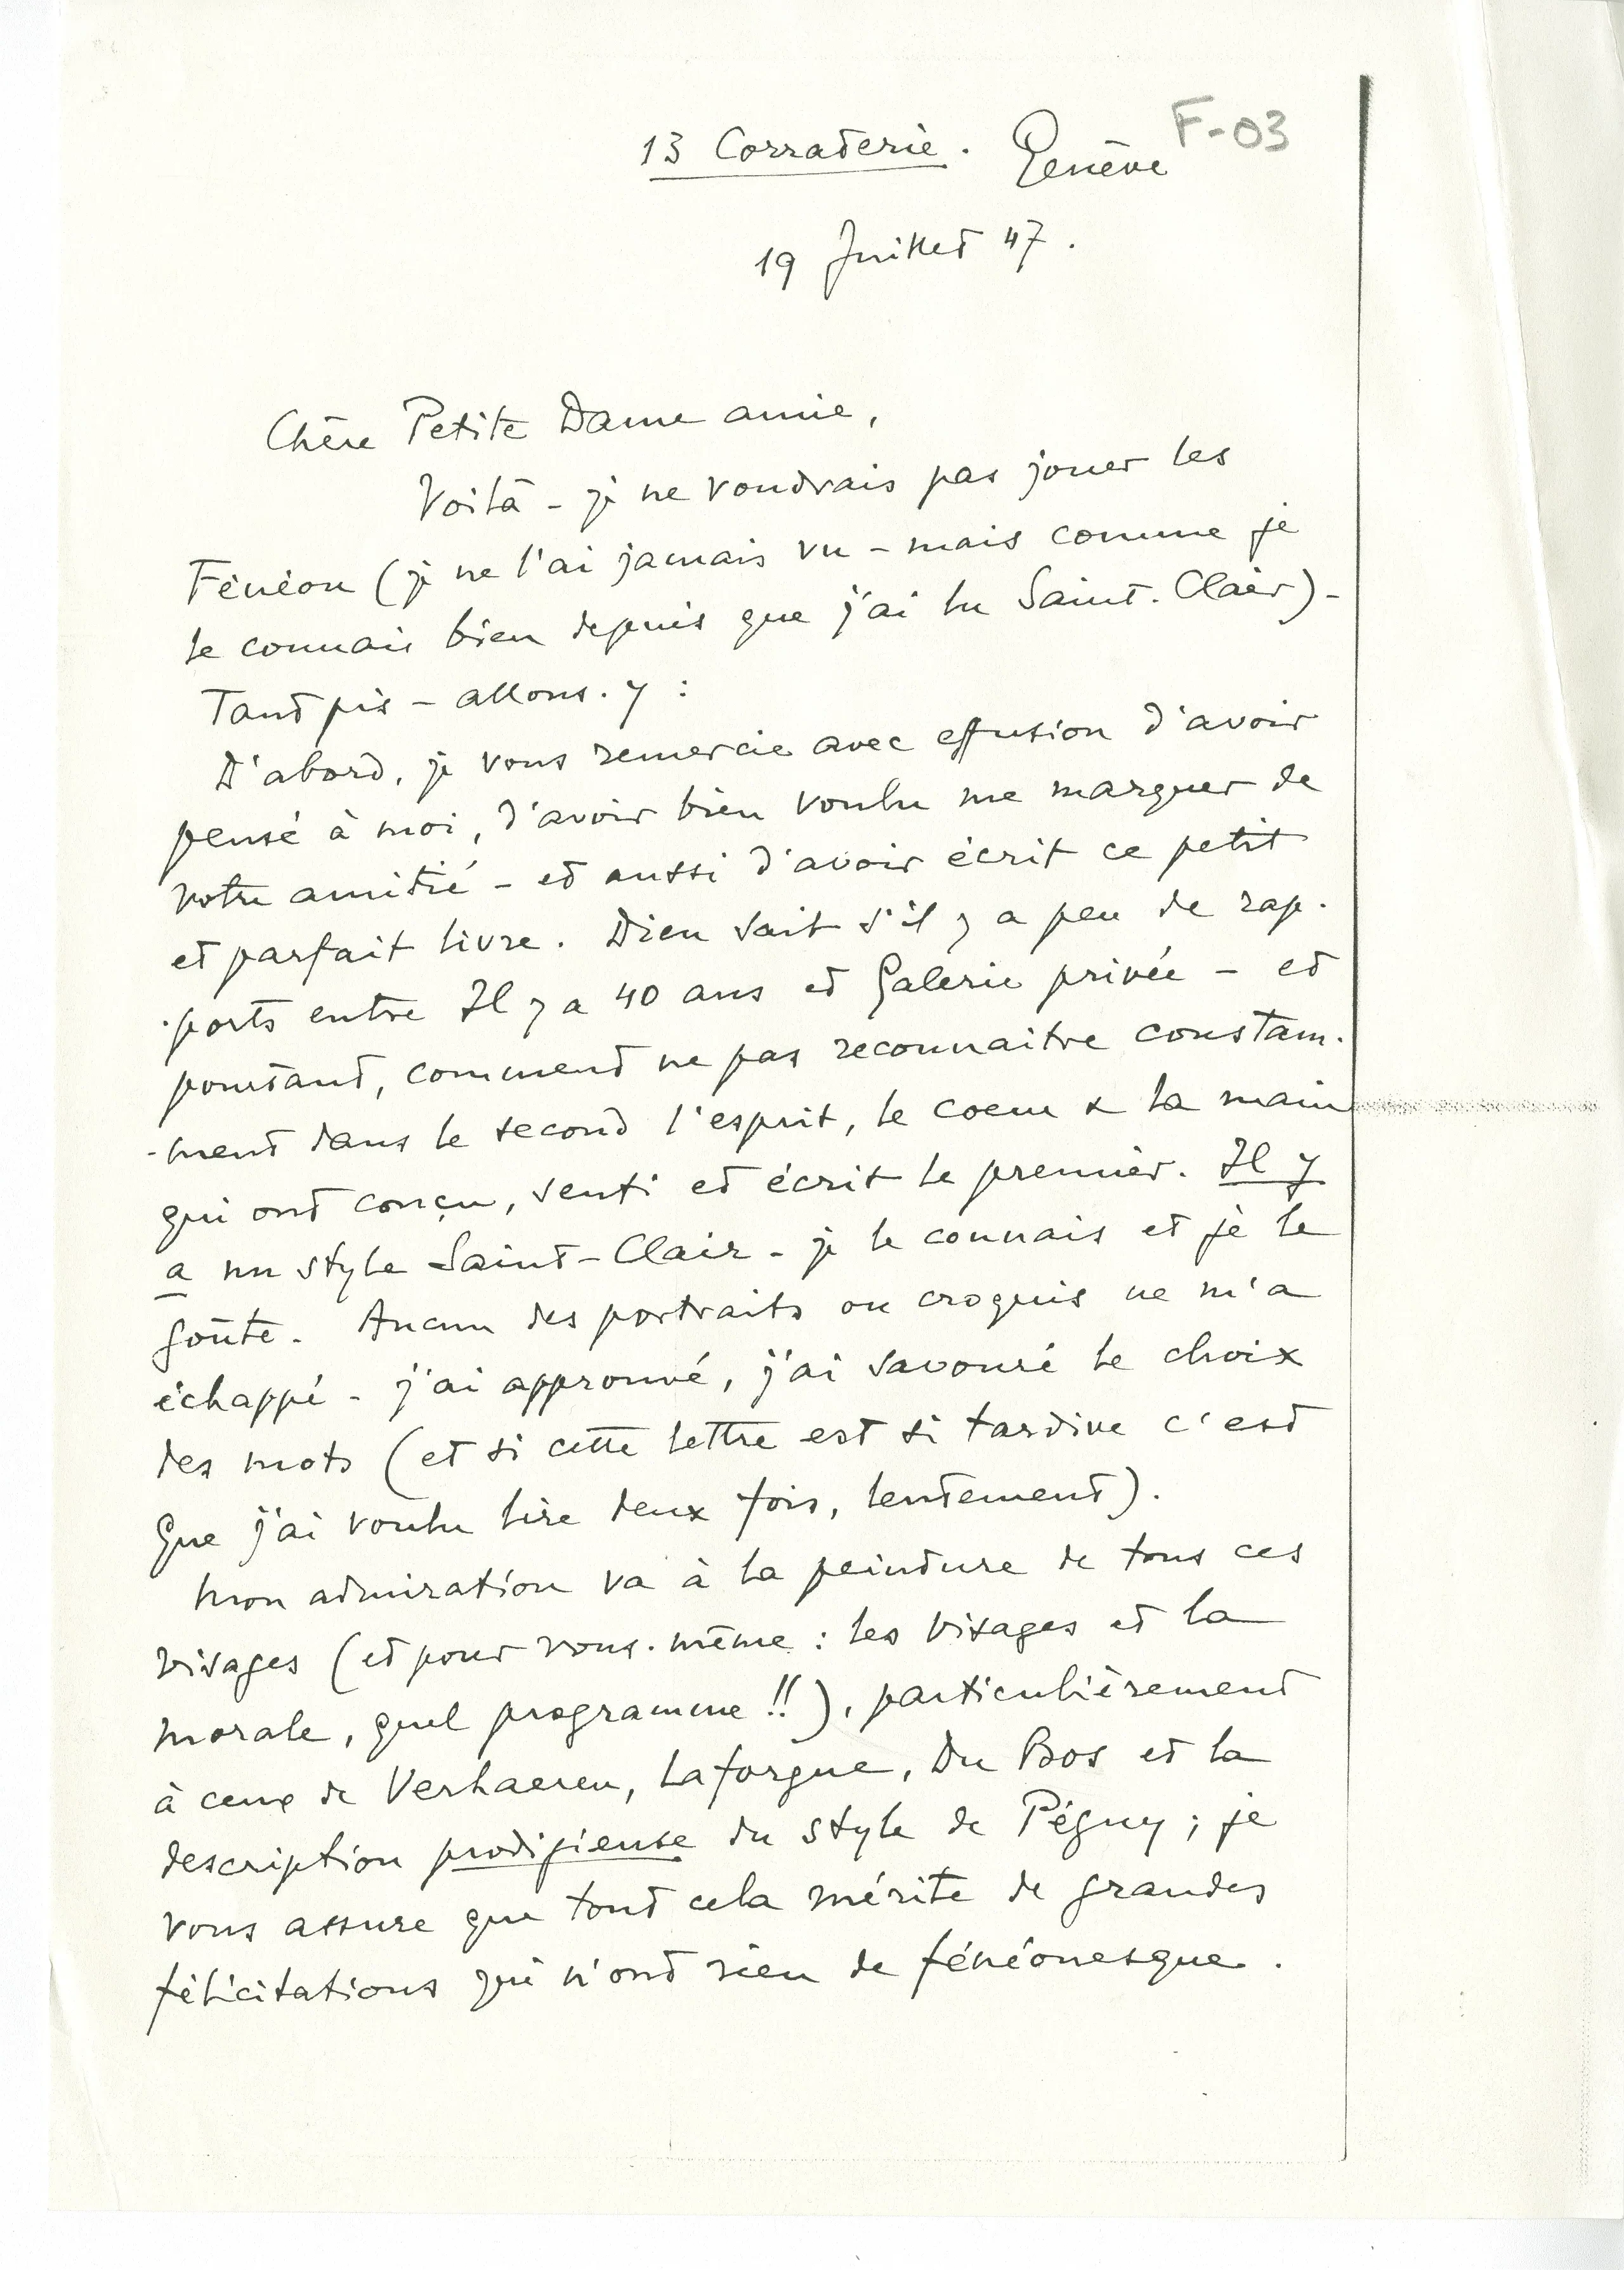 F-03
13 Corraterie. Genève
19 Juillet 47.
Chère Petite Dame amie,
Voilà - je ne voudrais pas jouer les
Fénéon (je ne l'ai jamais vu - mais comme je
le connais bien depuis que j'ai lu Saint-Clair) -
Tant pis - allons-y :
D'abord, je vous remercie avec effusion d'avoir
pensé à moi, d'avoir bien voulu me marquer de
votre amitié - et aussi d'avoir écrit ce petit
et parfait livre. Dieu sait s'il y a peu de rap-
-ports entre Il y a 40 ans et Galerie privée - et
pourtant, comment ne pas reconnaitre constam-
-ment dans le second l'esprit, le coeur & la main
qui ont conçu, senti et écrit le premier. Il y
a un style Saint-Clair - je le connais et je le
goûte. Aucun des portraits ou croquis ne m'a
échappé - j'ai approuvé, j'ai savouré le choix
des mots (et si cette lettre est si tardive c'est
que j'ai voulu lire deux fois, lentement).
Mon admiration va à la peinture de tous ces
visages (et pour vous-même : les visages et la
morale, quel programme !!), particulièrement
à ceux de Verhaeren, Laforgue, Du Bos et la
description prodigieuse du style de Péguy ; je
vous assure que tout cela mérite de grandes
félicitations qui n'ont rien de fénéonesque.